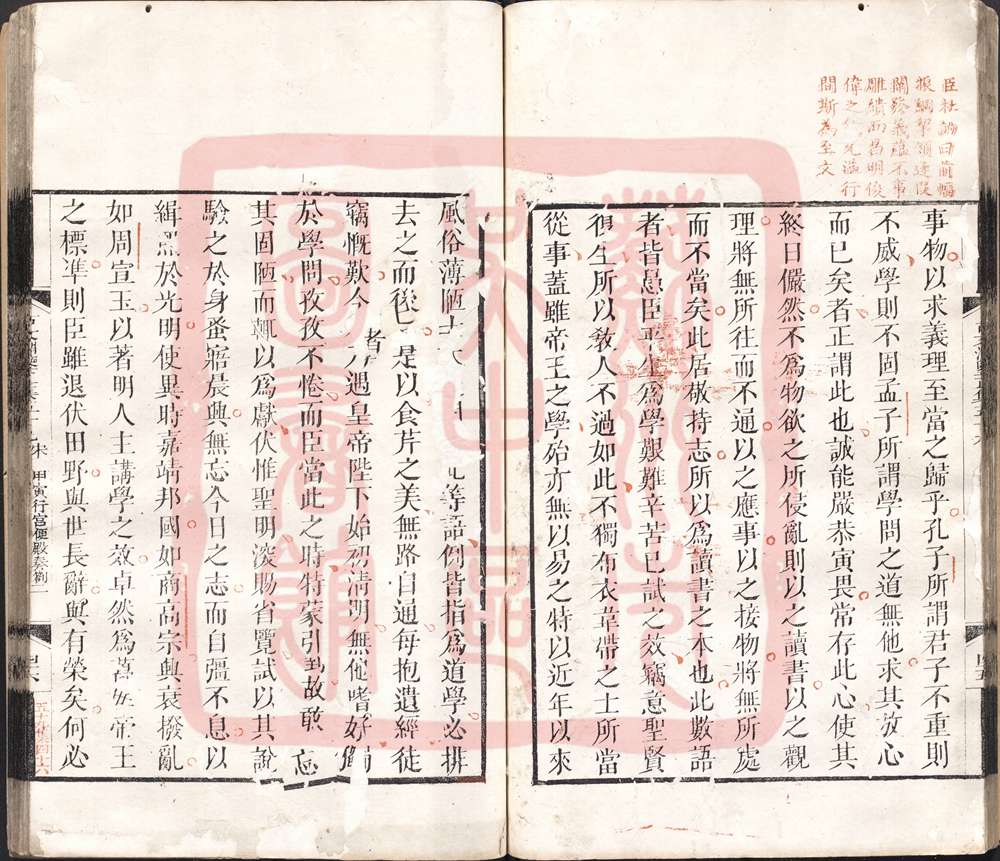 臣杜訥曰前幅
振綱挈領連段
闡發義蘊不事
雕繢而昌明俊
偉之
間斯為至文
事物以求義理至當之歸乎孔子所謂君子不重則
不威學則不固孟子所謂學問之道無他求其放心
而已矣者正謂此也誠能嚴恭寅畏常存此心使其
終日儼然不爲物欲之所侵亂則以之讀書以之觀
理將無所往而不通以之應事以之接物將無所處
而不當矣此居敬持志所以爲讀書之本也此數語
者皆愚臣平生爲學艱難辛苦已試之效竊意聖賢
復生所以敎人不過如此不獨布衣韋帶之士所當
從事蓋雖帝王之學殆亦無以易之特以近年以來
風俗薄陋士 此等語例皆指爲道學必排
去之而後 是以食芹之美無路自通每抱遺經徒
竊慨歎今者 遇皇帝陛下始初淸明無他嗜好
於學問孜孜不惓而臣當此之時特蒙引對故敢 忘
其固陋而輒以爲獻伏惟聖明深賜省覽試以其說
驗之於身蚤寤晨興無忘今日之志而自彊不息以
緝熙於光明使異時嘉靖邦國如商高宗興衰撥亂
如周宣王以著明人主講學之效卓然爲萬世帝王
之標準則臣雖退伏田野與世長辭與有榮矣何必
宋 甲寅行宮便殿奏劄一